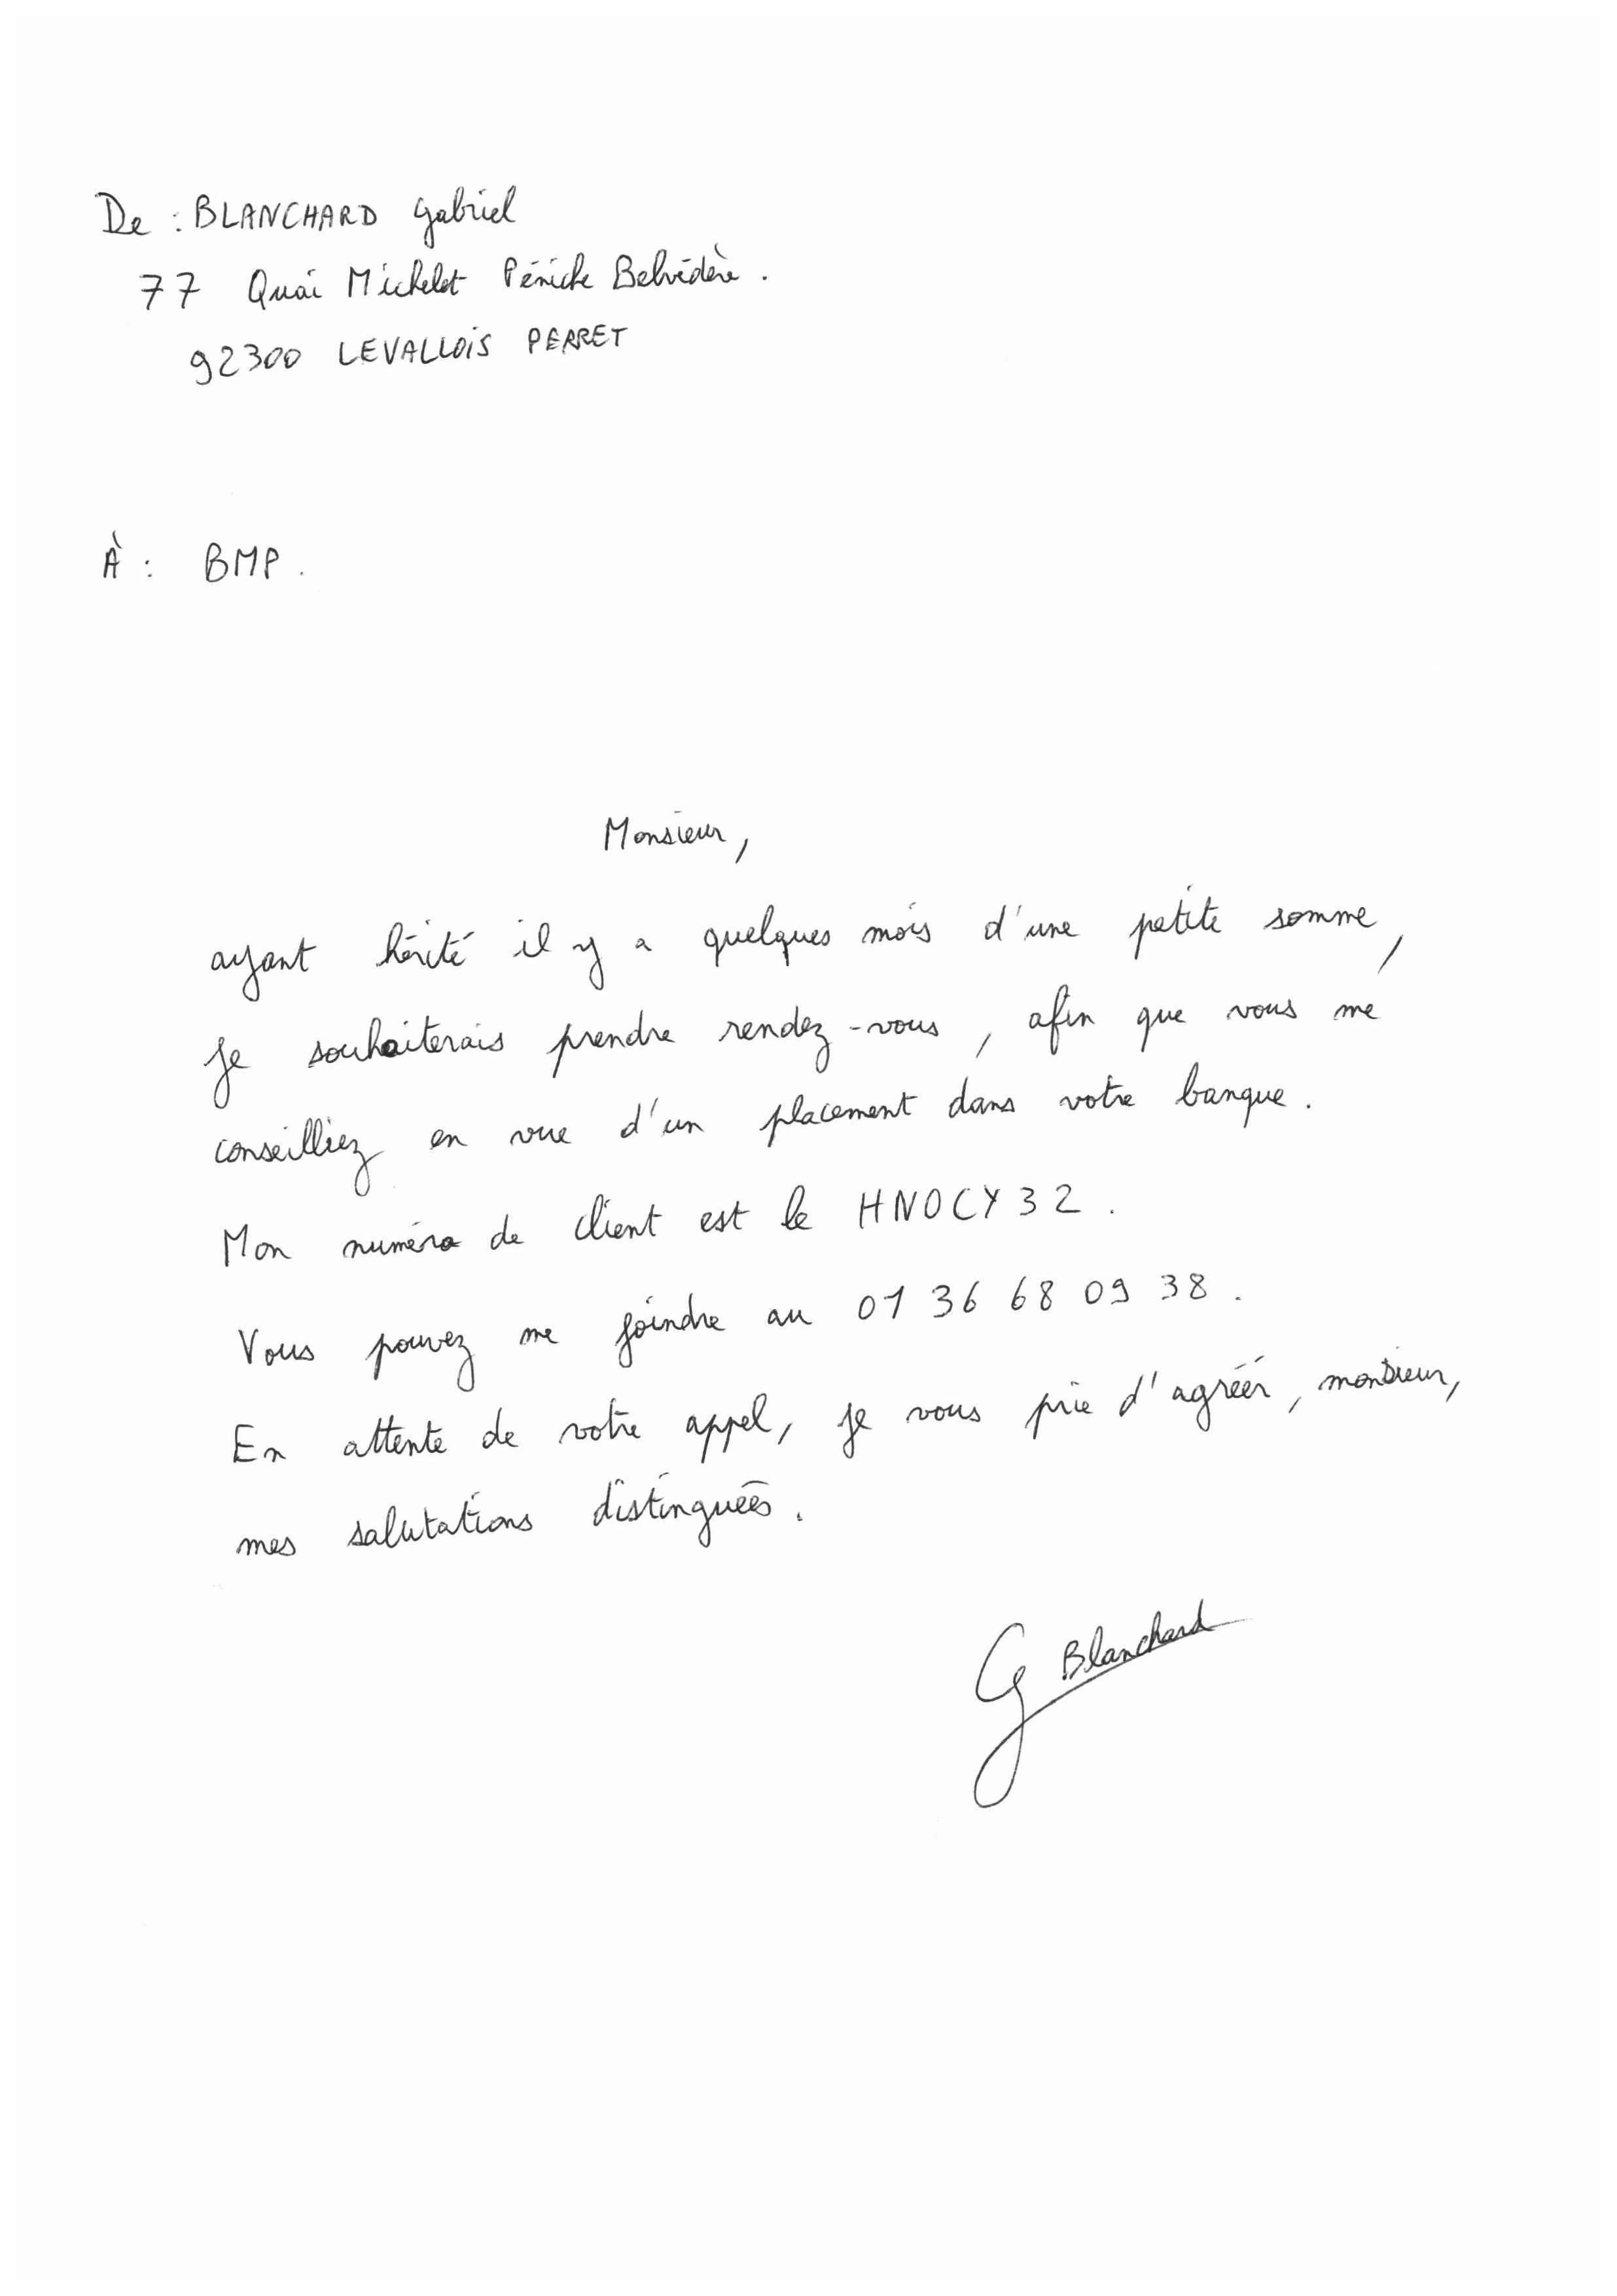 De : BLANCHARD Gabriel
77 Quai Michelet Péniche Belvédère.
92300 LEVALLOIS PERRET
À : BMP.
Monsieur,
ayant hérité il y a quelques mois d'une petite somme,
je souhaiterais prendre rendez-vous, afin que vous me
conseilliez en vue d'un placement dans votre banque.
Mon numéro de client est le HNOCY32.
Vous pouvez me joindre au 01 36 68 09 38.
En attente de votre appel, je vous prie d'agréér, monsieur,
mes salutations distinguées.
G Blanchard